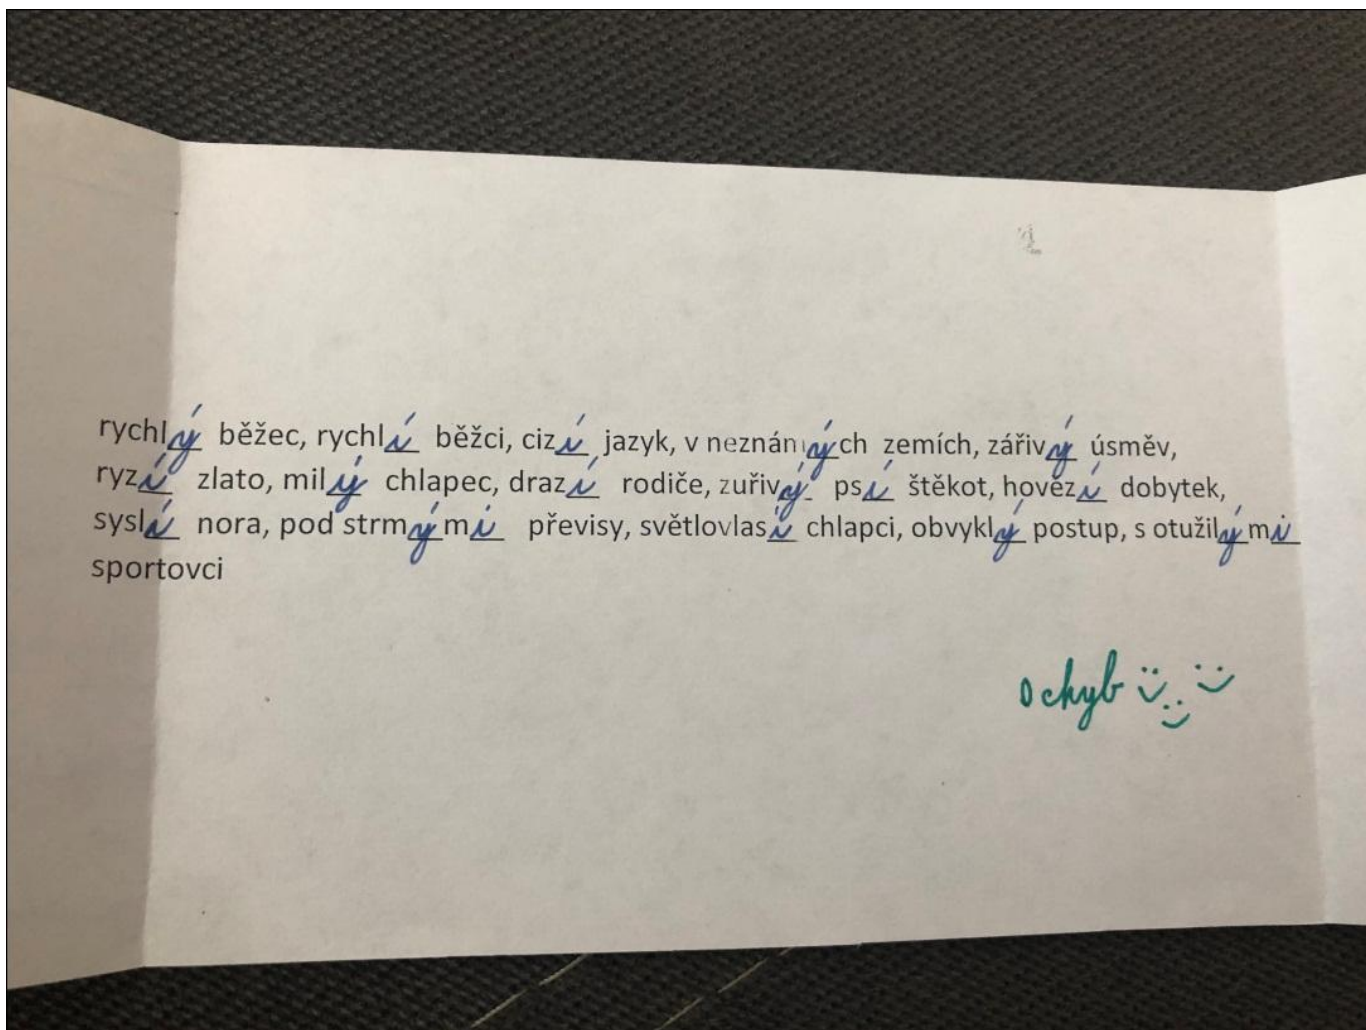 rychlý běžec, rychlí běžci, cizí jazyk, v neznámých zemích, zářivý úsměv,
ryzí zlato, milý chlapec, drazí rodiče, zuřivý psí štěkot, hovězí dobytek,
syslí nora, pod strmými převisy, světlovlasí chlapci, obvyklý postup, s otužilými
sportovci
0 chyb